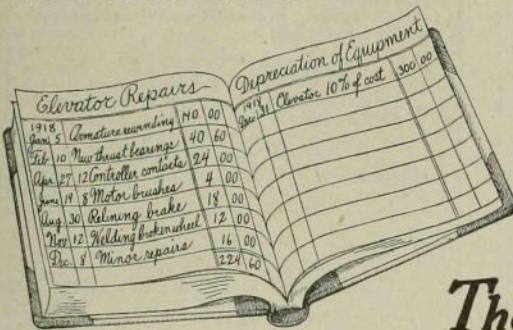 Elevator Repairs
1918
Jan 5 Armature rewinding 110 00
Feb 10 New thrust bearings 40 60
Apr 27 12 Controller contacts 24 00
June 14 8 Motor brushes 4 00
Aug 30 Relining brake 18 00
Nov 12 Welding broken wheel 12 00
Dec 8 Minor repairs 16 00
224 60
Depreciation of Equipment
1918
Dec 31 Elevator 10% of cost 300 00
The